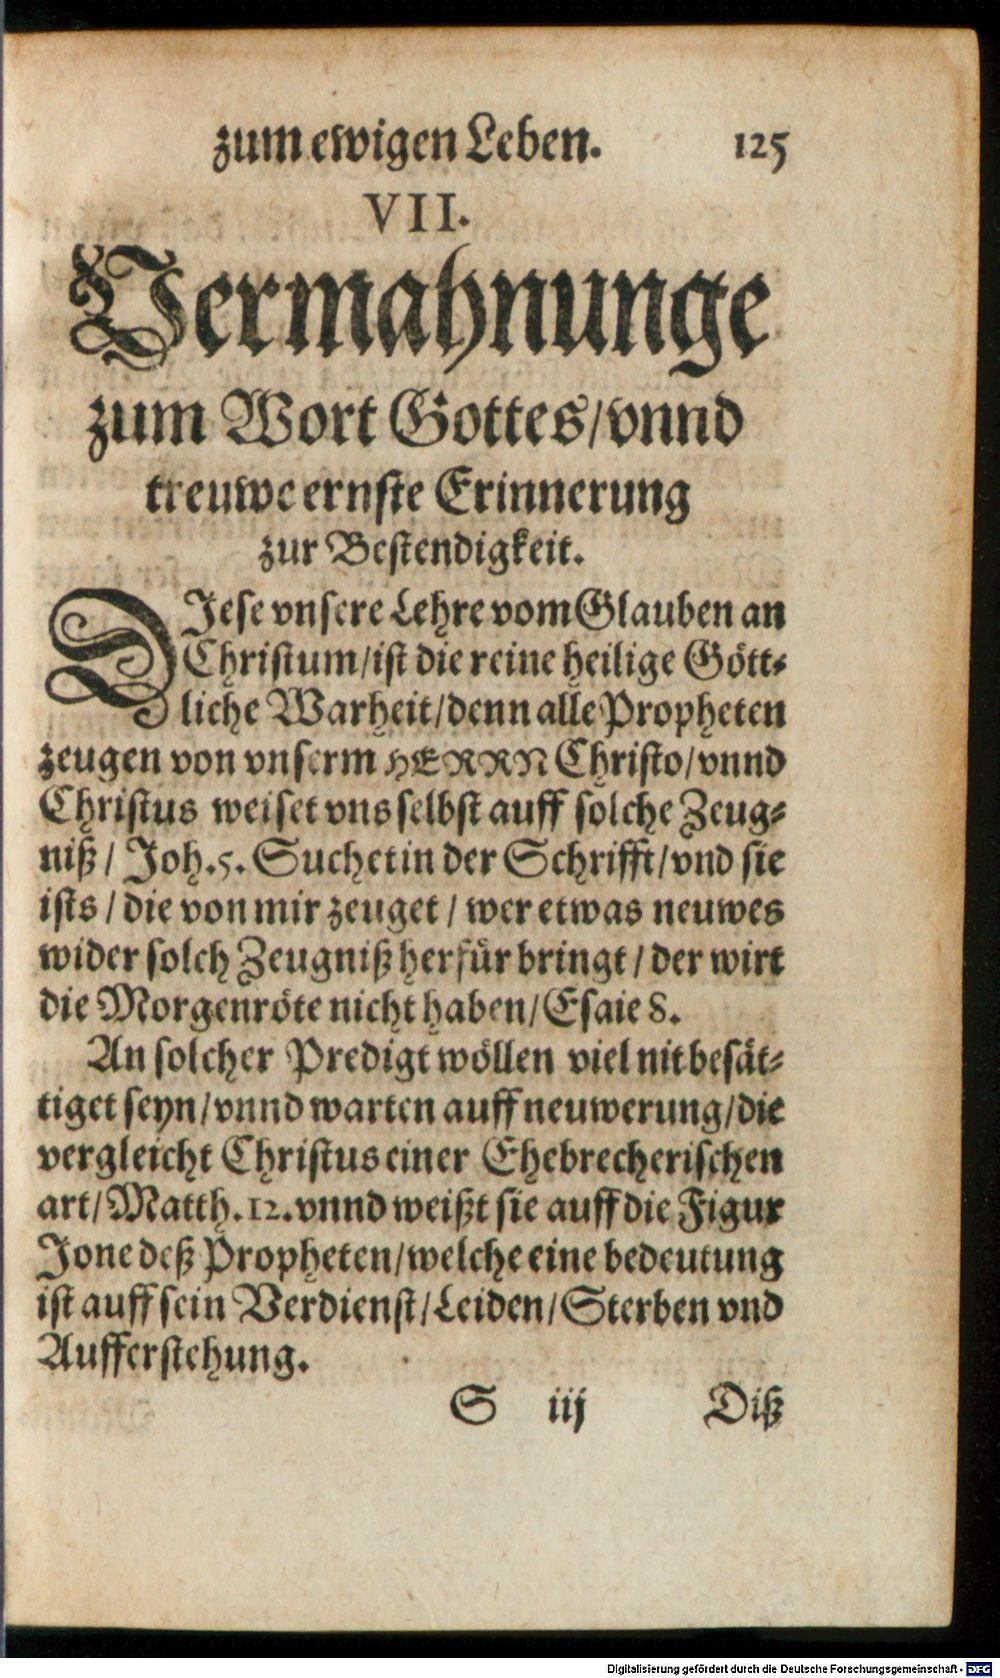 zum ewigen Leben. 125
VII.
Vermahnunge
zum Wort Gottes/vnnd
treuwe ernste Erinnerung
zur Bestendigkeit.
DJese vnsere Lehre vom Glauben an
Christum/ist die reine heilige Gött-
liche Warheit/denn alle Propheten
zeugen von vnserm HERRN Christo/vnnd
Christus weiset vns selbst auff solche Zeug-
niß/ Joh.5. Suchet in der Schrifft/vnd sie
ists/die von mir zeuget/wer etwas neuwes
wider solch Zeugniß herfür bringt/der wirt
die Morgenröte nicht haben/Esaie 8.
An solcher Predigt wöllen viel nit besät-
tiget seyn/vnnd warten auff neuwerung/die
vergleicht Christus einer Ehebrecherischen
art/Matth.12.vnnd weißt sie auff die Figur
Jone deß Propheten/welche eine bedeutung
ist auff sein Verdienst/Leiden/Sterben vnd
Aufferstehung.
S iij Diß
Digitalisierung gefördert durch die Deutsche Forschungsgemeinschaft - DFG